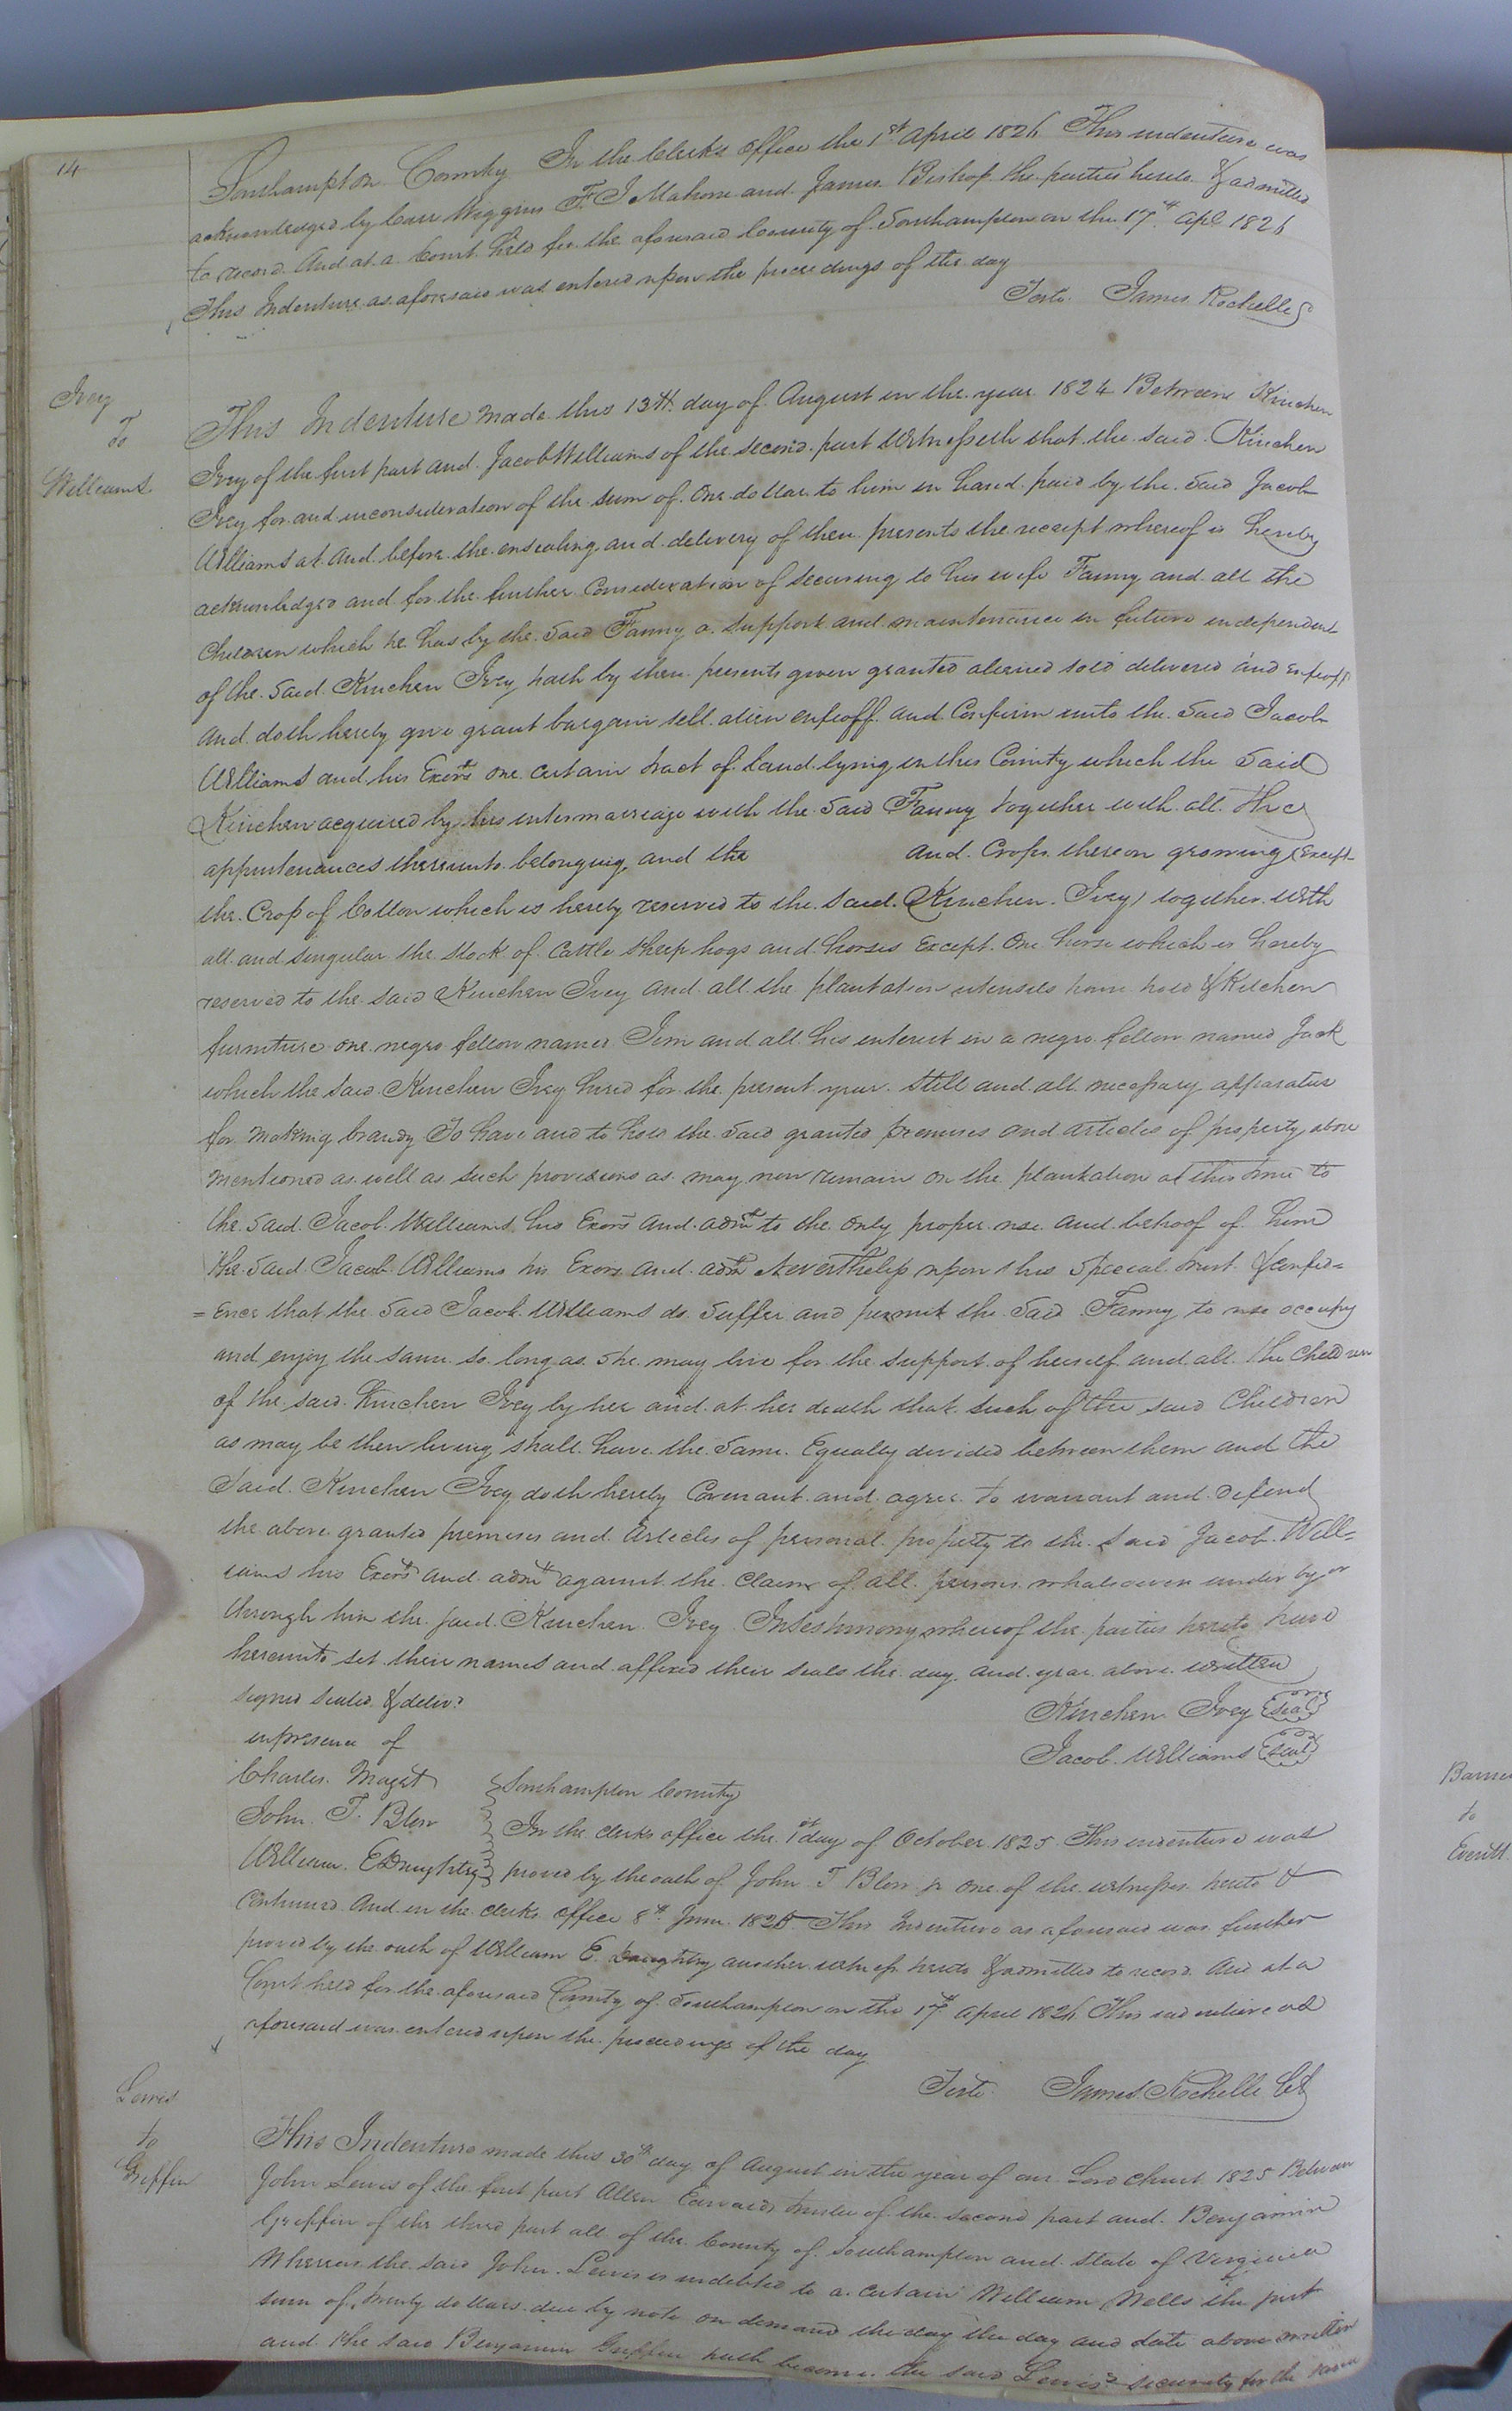 14
Southampton County In the Clerks Office the 1st April 1826 This indenture was
acknowledged by Carr Wiggins F. J. Mahone and James Bishop the parties hereto & admitted
to record And at a Court held for the aforesaid County of Southampton on the 17th Apl 1826
This Indenture as aforesaid was entered upon the proceedings of the day
Teste James Rochelle
Ivey
To
Williams
This Indenture made this 13th day of August in the year 1824 Between Kinchen
Ivey of the first part and Jacob Williams of the second part Witnesseth that the said Kinchen
Ivey for and inconsideration of the sum of One dollar to him in hand paid by the said Jacob
Williams at and before the ensealing and delivery of these presents the receipt whereof is hereby
acknowledged and for the further Consideration of securing to his wife Fanny and all the
Children which he has by the said Fanny a support and maintenance in future independent
of the said Kinchen Ivey hath by these presents given granted aliened sold delivered and enfeoff
And doth hereby give grant bargain sell alien enfeoff and Confirm unto the said Jacob
Williams and his Exors one certain tract of land lying in this County which the said
Kinchen acquired by his intermarriage with the said Fanny together with all the
appurtenances thereunto belonging and the and Crops thereon growing (Except
the Crop of Cotton which is hereby reserved to the said Kinchen Ivey) together with
all and singular the stock of Cattle sheep hogs and horses Except One horse which is hereby
reserved to the said Kinchen Ivey and all the plantation utensils house hold & Kitchen
furniture one negro fellow named Jim and all his interest in a negro fellow named Jack
which the said Kinchen Ivey hired for the present year Still and all necessary apparatus
for making brandy To have and to hold the said granted premises and articles of property above
mentioned as well as such provisions as may now remain on the plantation at this time to
the said Jacob Williams his Exors and adms to the only proper use and behoof of him
the said Jacob Williams his Exors and adms Neverthelss upon this Special trust & confid=
=ence that the said Jacob Williams do suffer and permit the said Fanny to use occupy
and enjoy the same so long as she may live for the support of herself and all the children
of the said Kinchen Ivey by her and at her death that such of the said Children
as may be then living shall have the same Equally divided between them and the
said Kinchen Ivey doth hereby Covenant and agree to warrant and defend
the above granted premises and Articles of personal property to the said Jacob Will=
iams his Exors and adms against the claim of all persons whatsoever under by or
through him the said Kinchen Ivey Intestimony whereof the parties hereto have
hereunto set their names and affixed their seals the day and year above written
signed sealed & delivd
inpresence of
Kinchen Ivey seal
Jacob Williams seal
Charles Maget
John T. Blow
William E Daughtry
Southampton County
In the clerks office the 1st day of October 1825 This indenture was
proved by the oath of John T Blow jr one of the witnesses hereto &
Continued And in the clerks office 8th 1826 This Indenture as aforesaid was further
proved by the oath of William E. Daughtry another witness hereto & admitted to record And at a
Court held for the aforesaid County of Southampton on the 17th April 1826 This indenture as
aforesaid was entered upon the proceedings of the day
Teste James Rochelle Clk
Lewis
to
Griffin
This Indenture made this 30th day of August in the year of our Lord Christ 1825 Between
John Lewis of the first part Allen Edwards trustee of the second part and Benjamin
Griffin of the third part all of the County of Southampton and state of Virginia
Whereas the said John Lewis is indebted to a certain William Wells the just
sum of twenty dollars due by note on demand the day the day and date above written
and the said Benjamin Griffin hath become the said Lewis's security for the same
to
Everitt